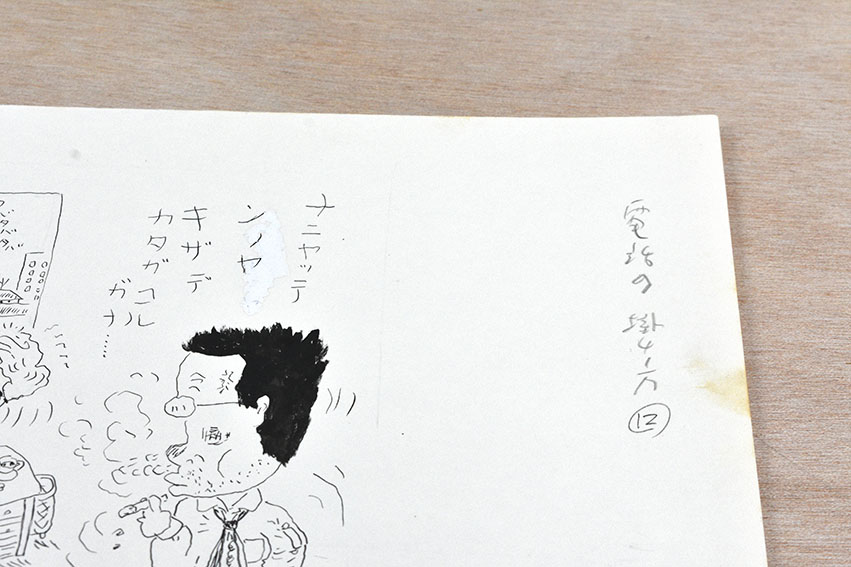 電話の掛け方⑫
ナニヤッテ
ンノヤ
キザデ
カタガコル
ガナ……